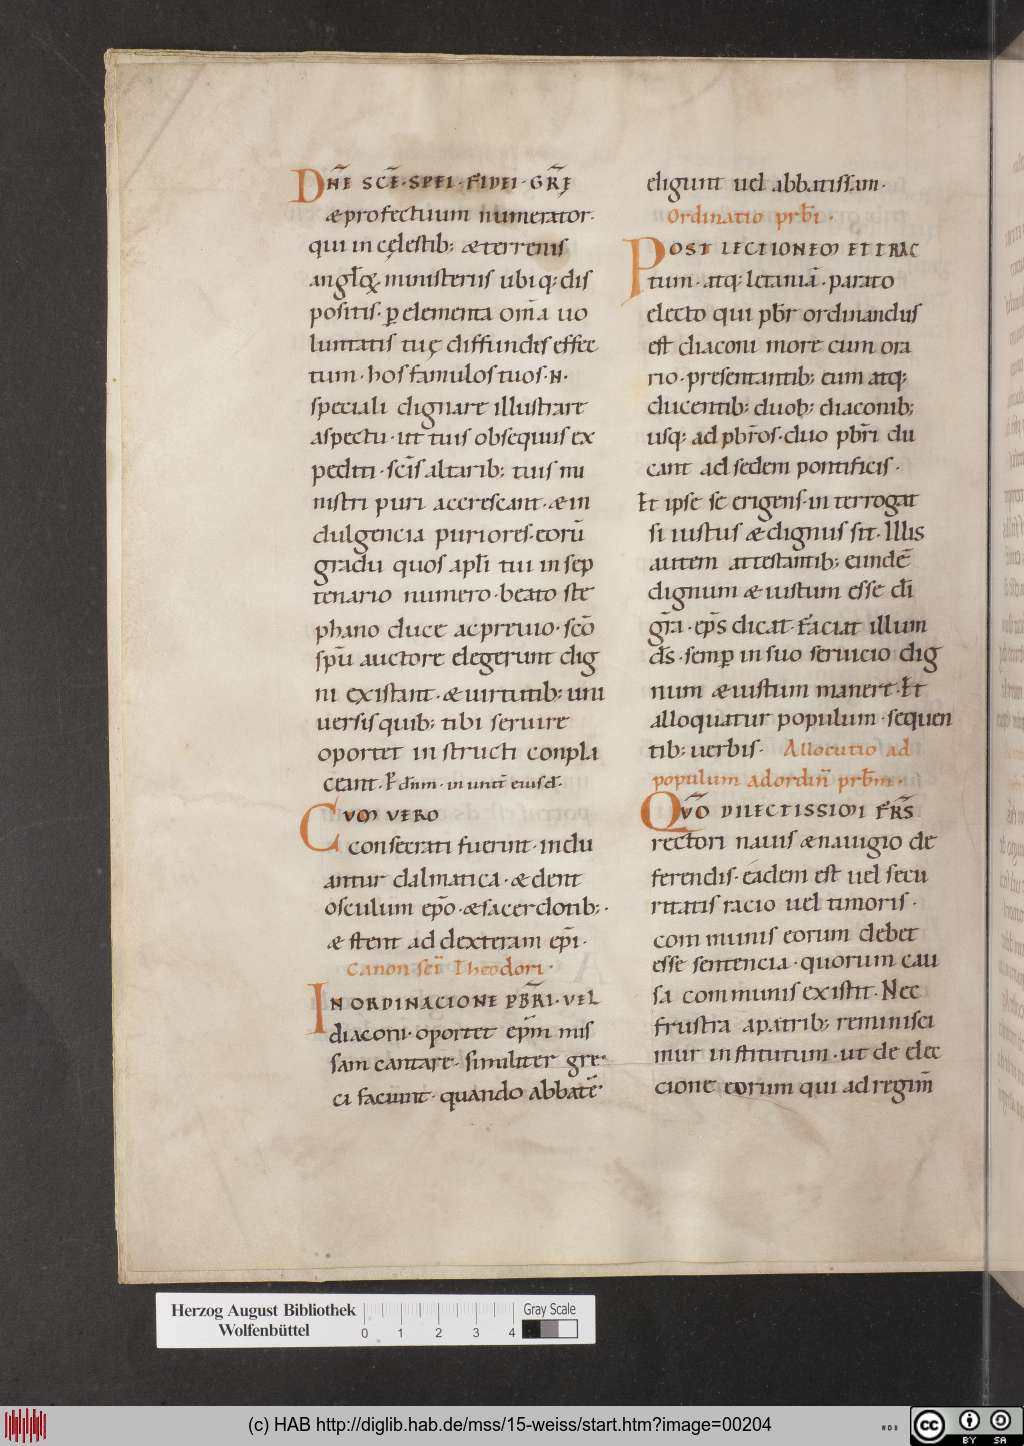 DN̄E SCE̅·SPEI·FIDEI·GRĘ̄
& profectuum numerator·
qui in cęlestib; & terrenis
angl̄cꝫ ministeriis ubiq; dis
positis· ꝑ elementa om̄a uo
luntatis tuę diffundis effec
tum· hos famulos tuos·N·
speciali dignare illustrare
aspectu· ut tuis obsequiis ex
pediti· sc̄is altarib; tuis mi
nistri puri accrescant· & in
dulgencia puriores· eorū
gradu quos apl̄i tui in sep
tenario numero· beato ste
phano duce ac preuio· sc̄o
sp̄u auctore elegerunt dig
ni existant· & uirtutib; uni
uersis quib; tibi seruire
oportet instructi conpla
ceant· P̄ dn̄m· in unit̄ eiusd̄·
CUM VERO
consecrati fuerint· indu
antur dalmatica· & dent
osculum ep̄o· & sacerdotib;·
& stent ad dexteram ep̄i·
Canon sc̄i Theodori·
IN ORDINACIONE PB̄RI· VEL
diaconi· oportet ep̄m mis
sam cantare· similiter gre
ci faciunt· quando abbatē
eligunt uel abbatissam·
Ordinatio prb̄i·
POST LECTIONEM ET TRAC
tum· atq; letaniā· parato
electo qui pb̄r ordinandus
est diaconi more cum ora
rio· presentantib; eum atq;
ducentib; duob; diaconib;
usq; ad pb̄ros· duo pb̄ri du
cant ad sedem pontificis·
Et ipse se erigens· interrogat
si iustus & dignus sit· Illis
autem attestantib; eundē
dignum & iustum esse d̄i
gr̄a· ep̄s dicat· Faciat illum
d̄s· semꝑ in suo seruicio dig
num & iustum manere· Et
alloquatur populum· sequen
tib; uerbis· Allocutio ad
populum ad ordin̄ prb̄m·
QUŌ DILECTISSIMI FR̄S
rectori nauis & nauigio de
ferendis· eadem est uel secu
ritatis racio uel timoris·
communis eorum debet
esse sentencia· quorum cau
sa communis existit· Nec
frustra a patrib; reminisci
mur institutum· ut de elec
cione eorum qui ad regim̄
Herzog August Bibliothek
Wolfenbüttel
0 1 2 3 4
Gray Scale
(c) HAB http://diglib.hab.de/mss/15-weiss/start.htm?image=00204
WDB
CC BY SA